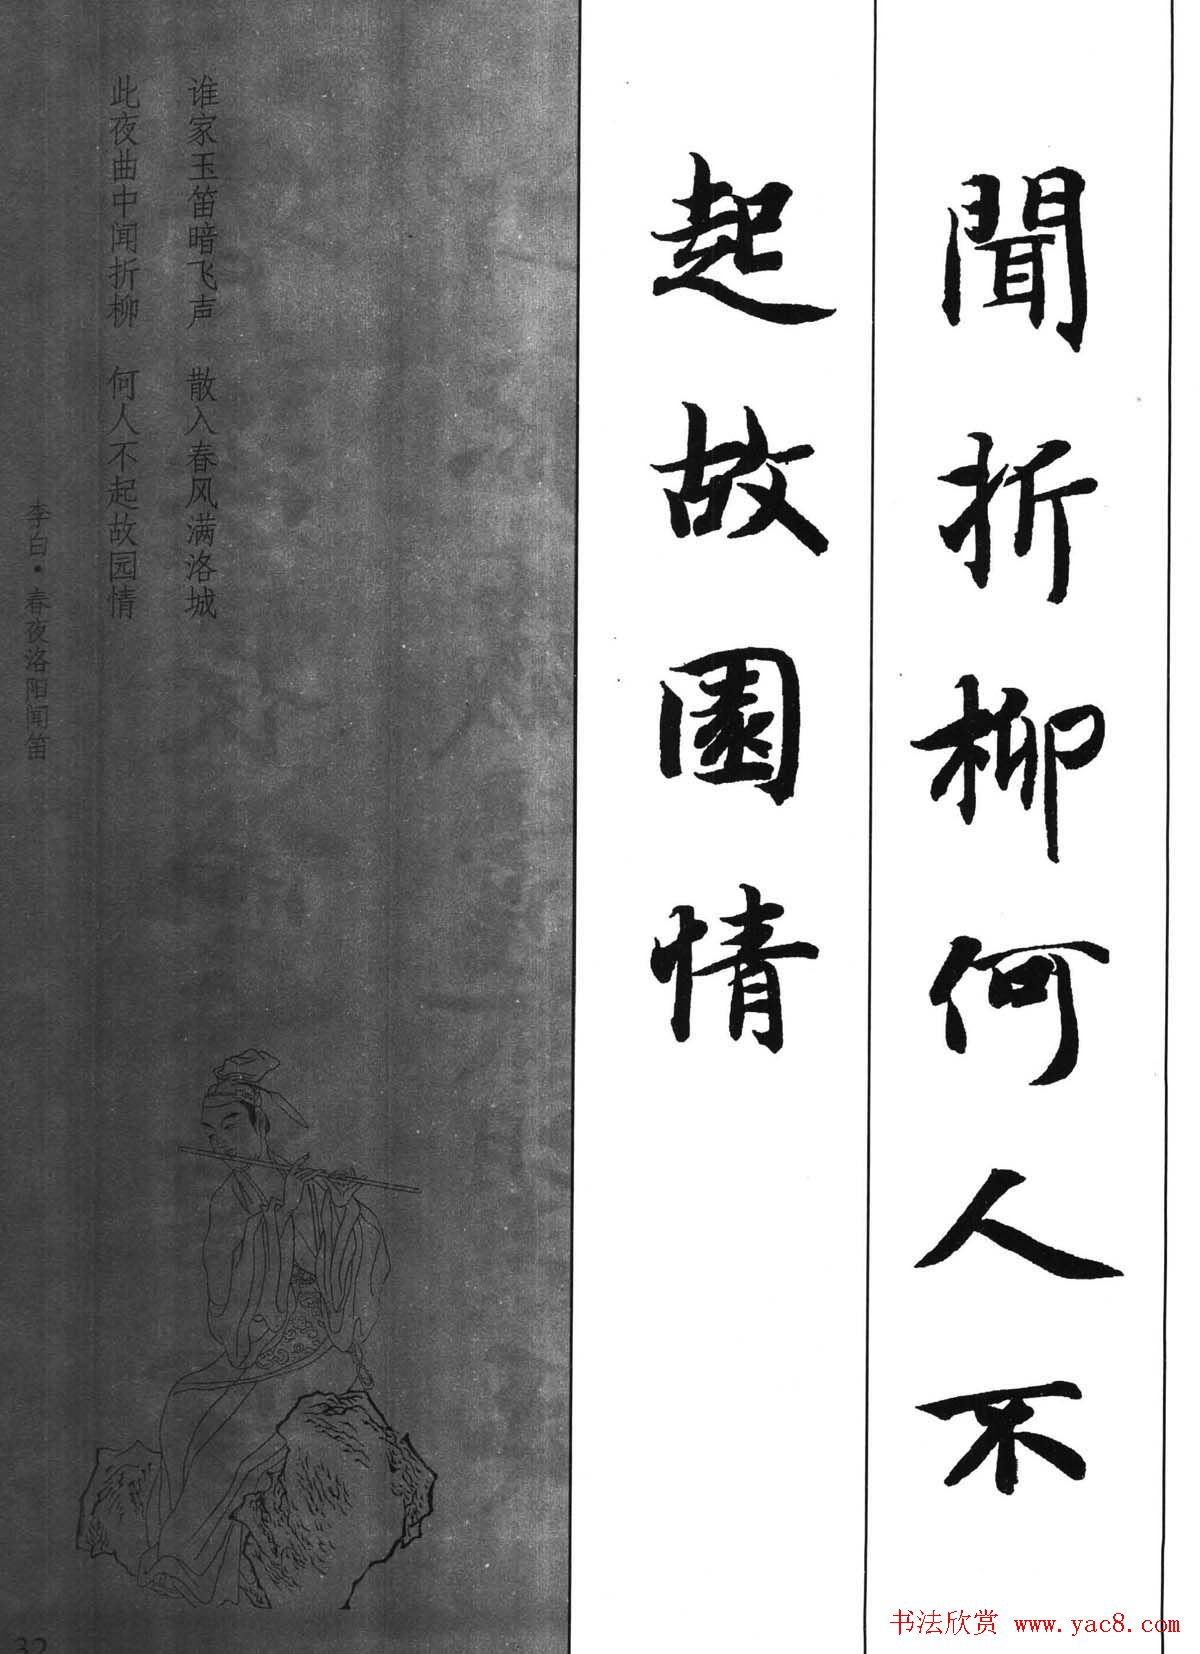 聞折柳何人不
起故園情
谁家玉笛暗飞声 散入春风满洛城
此夜曲中闻折柳 何人不起故园情
李白·春夜洛阳闻笛
32
书法欣赏 www.yac8.com